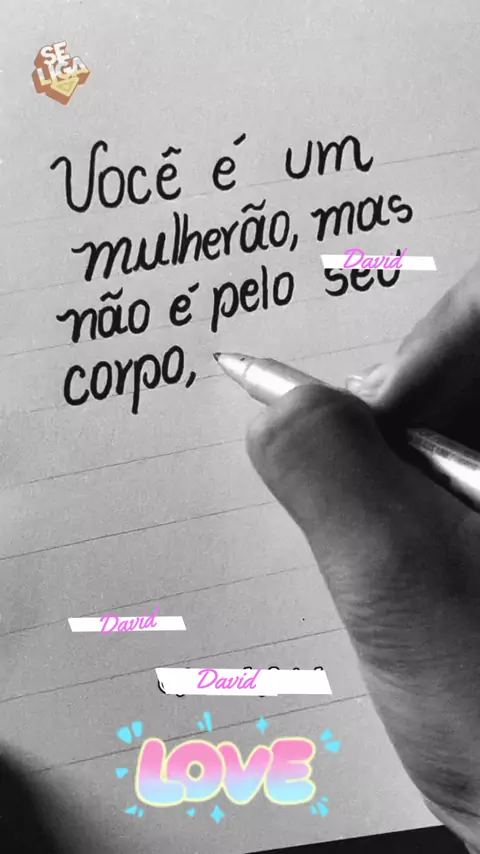 SE
LIGA
Você é um
mulherão, mas
não é pelo seu
David
corpo,
David
David
LOVE